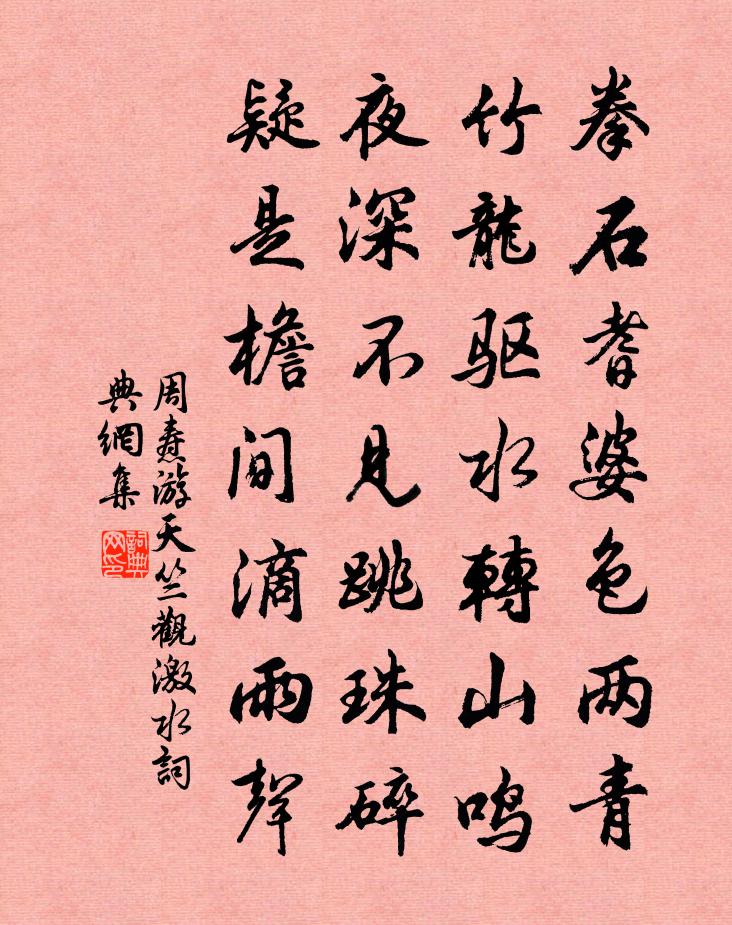 拳石耆婆色两青
竹龍驱水轉山鸣
夜深不见跳珠碎
疑是檐间滴雨聲
周焘游天竺觀激水詞
典網集
詞典网印